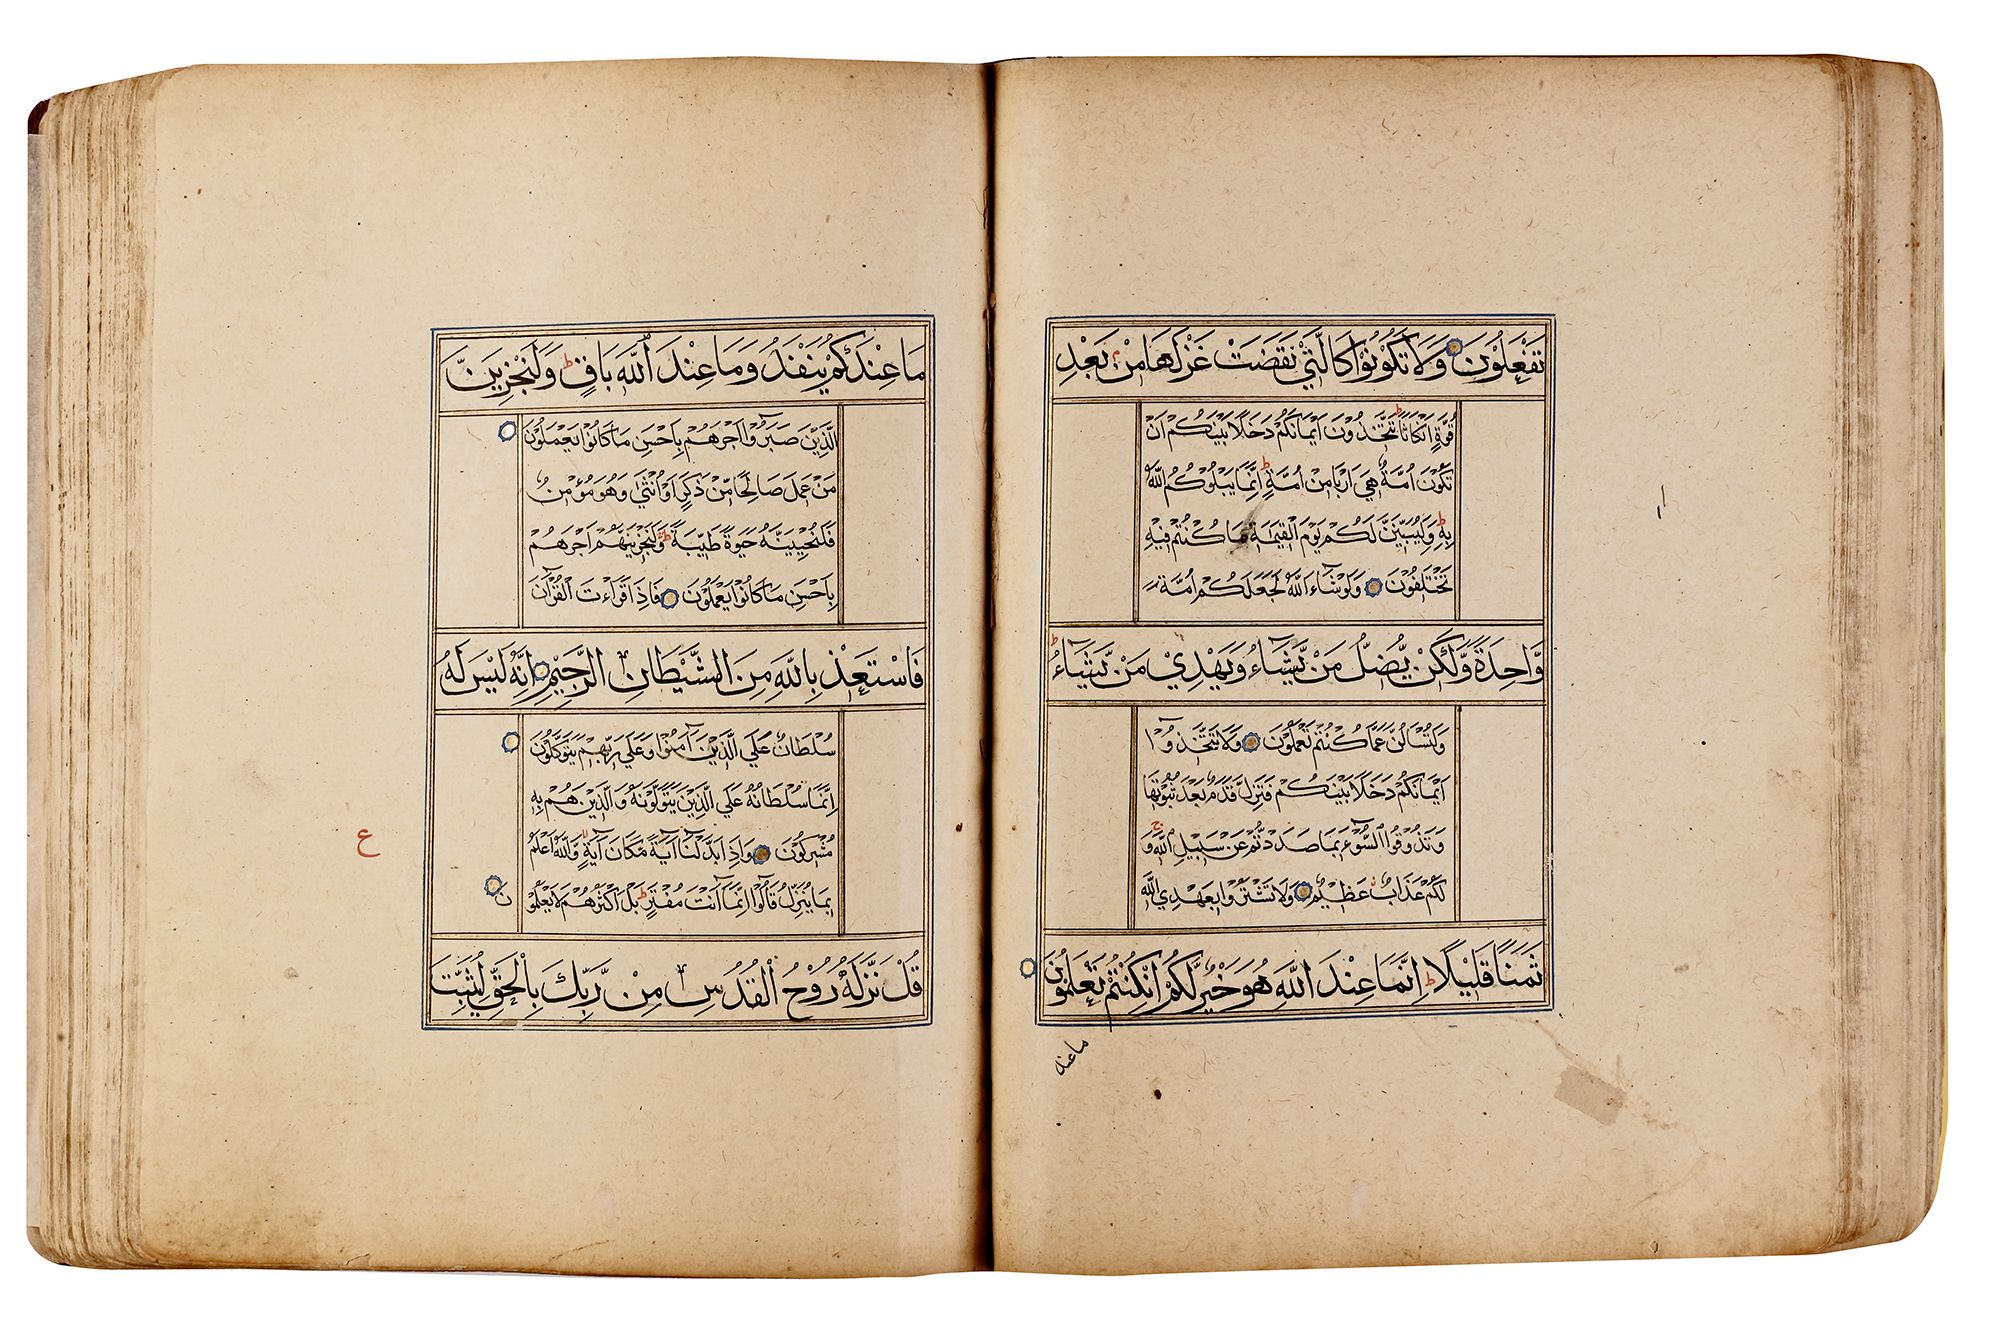 تَفْعَلُوْنَ وَلَا تَكُوْنُوْا كَالَّتِيْ نَقَضَتْ غَزْلَهَا مِنْ بَعْدِ
قُوَّةٍ اَنْكَاثًا تَتَّخِذُوْنَ اَيْمَانَكُمْ دَخَلًا بَيْنَكُمْ اَنْ
تَكُوْنَ اُمَّةٌ هِيَ اَرْبَا مِنْ اُمَّةٍ ط اِنَّمَا يَبْلُوْكُمُ اللّٰهُ
بِهٖ ط وَلَيُبَيِّنَنَّ لَكُمْ يَوْمَ الْقِيٰمَةِ مَا كُنْتُمْ فِيْهِ
تَخْتَلِفُوْنَ وَلَوْ شَاءَ اللّٰهُ لَجَعَلَكُمْ اُمَّةً
وَّاحِدَةً وَّلٰكِنْ يُّضِلُّ مَنْ يَّشَاءُ وَيَهْدِيْ مَنْ يَّشَاءُ ط
وَلَتُسْاَلُنَّ عَمَّا كُنْتُمْ تَعْمَلُوْنَ وَلَا تَتَّخِذُوْا
اَيْمَانَكُمْ دَخَلًا بَيْنَكُمْ فَتَزِلَّ قَدَمٌ بَعْدَ ثُبُوْتِهَا
وَتَذُوْقُوا السُّوْءَ بِمَا صَدَدْتُّمْ عَنْ سَبِيْلِ اللّٰهِ ج وَ
لَكُمْ عَذَابٌ عَظِيْمٌ وَلَا تَشْتَرُوْا بِعَهْدِ اللّٰهِ
ثَمَنًا قَلِيْلًا ط اِنَّمَا عِنْدَ اللّٰهِ هُوَ خَيْرٌ لَّكُمْ اِنْ كُنْتُمْ تَعْلَمُوْنَ
ما عند
مَا عِنْدَكُمْ يَنْفَدُ وَمَا عِنْدَ اللّٰهِ بَاقٍ ط وَلَنَجْزِيَنَّ
الَّذِيْنَ صَبَرُوْا اَجْرَهُمْ بِاَحْسَنِ مَا كَانُوْا يَعْمَلُوْنَ
مَنْ عَمِلَ صَالِحًا مِّنْ ذَكَرٍ اَوْ اُنْثٰى وَهُوَ مُؤْمِنٌ
فَلَنُحْيِيَنَّهٗ حَيٰوةً طَيِّبَةً ط وَلَنَجْزِيَنَّهُمْ اَجْرَهُمْ
بِاَحْسَنِ مَا كَانُوْا يَعْمَلُوْنَ فَاِذَا قَرَاْتَ الْقُرْاٰنَ
فَاسْتَعِذْ بِاللّٰهِ مِنَ الشَّيْطَانِ الرَّجِيْمِ اِنَّهٗ لَيْسَ لَهٗ
سُلْطَانٌ عَلَي الَّذِيْنَ آمَنُوْا وَعَلٰي رَبِّهِمْ يَتَوَكَّلُوْنَ
اِنَّمَا سُلْطَانُهٗ عَلَي الَّذِيْنَ يَتَوَلَّوْنَهٗ وَالَّذِيْنَ هُمْ بِهٖ
مُشْرِكُوْنَ وَاِذَا بَدَّلْنَا آيَةً مَّكَانَ آيَةٍ لا وَّاللّٰهُ اَعْلَمُ
بِمَا يُنَزِّلُ قَالُوْا اِنَّمَا اَنْتَ مُفْتَرٍ ط بَلْ اَكْثَرُهُمْ لَا يَعْلَمُوْنَ
ع
قُلْ نَزَّلَهٗ رُوْحُ الْقُدُسِ مِنْ رَّبِّكَ بِالْحَقِّ لِيُثَبِّتَ